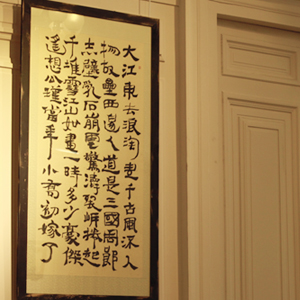 大江東去浪淘盡千古風流人
物故壘西邊人道是三國周郎
赤壁乱石崩雲驚濤裂岸捲起
千堆雪江山如畫一時多少豪傑
遙想公瑾當年小喬初嫁了